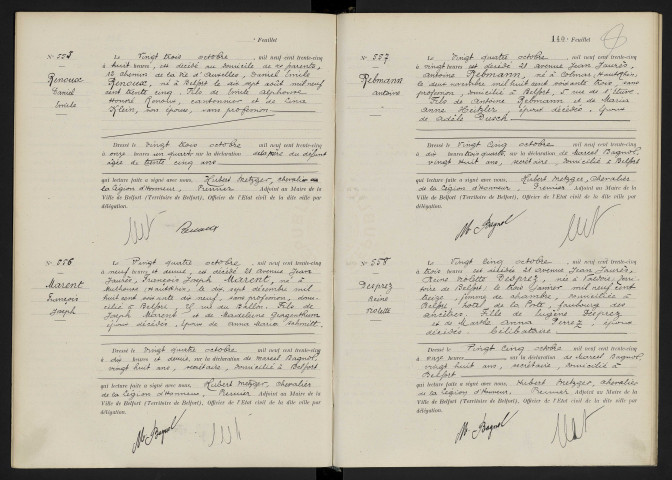 Feuillet
N° 555
Renoux
Daniel
Emile
Le Vingt trois octobre mil neuf cent trente-cinq
à huit heures, est décédé au domicile de ses parents,
12 chemin de la Vie d'Auxelles, Daniel Emile
Renoux, né à Belfort le dix sept août mil neuf
cent trente cinq. Fils de Emile Alphonse
Honoré Renoux, cantonnier et de
Klein, son épouse, sans profession
Dressé le vingt trois octobre mil neuf cent trente-cinq
à onze heures un quart sur la déclaration du père du défunt
âgé de trente cinq ans
qui lecture faite a signé avec nous, Hubert Metzger, chevalier
de la Légion d'Honneur, Premier Adjoint au Maire de la
Ville de Belfort (Territoire de Belfort), Officier de l'Etat civil de la dite ville par
délégation.
Renoux
N° 556
Marent
François
Joseph
Le Vingt quatre octobre mil neuf cent trente-cinq
à neuf heures et demie, est décédé 21 avenue Jean
Jaurès, François Joseph Marent, né à
Mulhouse Haut-Rhin, le dix sept décembre mil
huit cent soixante dix neuf, sans profession, domi-
cilié à Belfort, du Ballon. Fils de
Joseph Marent et de Madeleine
époux décédés. Epoux de Anna Maria Schmitt
Dressé le vingt quatre octobre mil neuf cent trente-cinq
à dix heures et demie, sur la déclaration de Marcel Bagnol,
vingt huit ans, secrétaire, domicilié à Belfort
qui lecture faite a signé avec nous, Hubert Metzger, chevalier
de la Légion d'Honneur, Premier Adjoint au Maire de la
Ville de Belfort (Territoire de Belfort), Officier de l'Etat civil de la dite ville par
délégation.
M. Bagnol
140 Feuillet
N° 557
Rebmann
Antoine
Le Vingt quatre octobre mil neuf cent trente-cinq
à vingt heures est décédé 21 avenue Jean Jaurès,
Antoine Rebmann, né à Colmar Haut-Rhin,
le deux novembre mil huit cent soixante trois, sans
profession, domicilié à Belfort, 5 rue de l'Etuve.
Fils de Antoine Rebmann et de Maria
Anne Heitzler, époux décédés. Epoux
de Adèle Besch
Dressé le Vingt cinq octobre mil neuf cent trente-cinq
à dix heures trois quarts, sur la déclaration de Marcel Bagnol,
vingt huit ans, secrétaire, domicilié à Belfort
qui lecture faite a signé avec nous, Hubert Metzger, chevalier
de la Légion d'Honneur, Premier Adjoint au Maire de la
Ville de Belfort (Territoire de Belfort), Officier de l'Etat civil de la dite ville par
délégation.
M. Bagnol
N° 558
Desprez
Reine
Nolette
Le Vingt cinq octobre mil neuf cent trente-cinq
à trois heures est décédée 21 avenue Jean Jaurès,
Reine Nolette Desprez, née à Terri-
toire de Belfort, le trois janvier mil neuf cent
treize, femme de chambre, domiciliée à
Belfort hôtel de la Poste, faubourg des
ancêtres. Fille de Eugène Desprez
et de Marthe Anna Perrez, époux
décédés. Célibataire
Dressé le Vingt cinq octobre mil neuf cent trente-cinq
à onze heures sur la déclaration de Marcel Bagnol,
vingt huit ans, secrétaire, domicilié à
Belfort
qui lecture faite a signé avec nous, Hubert Metzger, chevalier
de la Légion d'Honneur, Premier Adjoint au Maire de la
Ville de Belfort (Territoire de Belfort), Officier de l'Etat civil de la dite ville par
délégation.
M. Bagnol